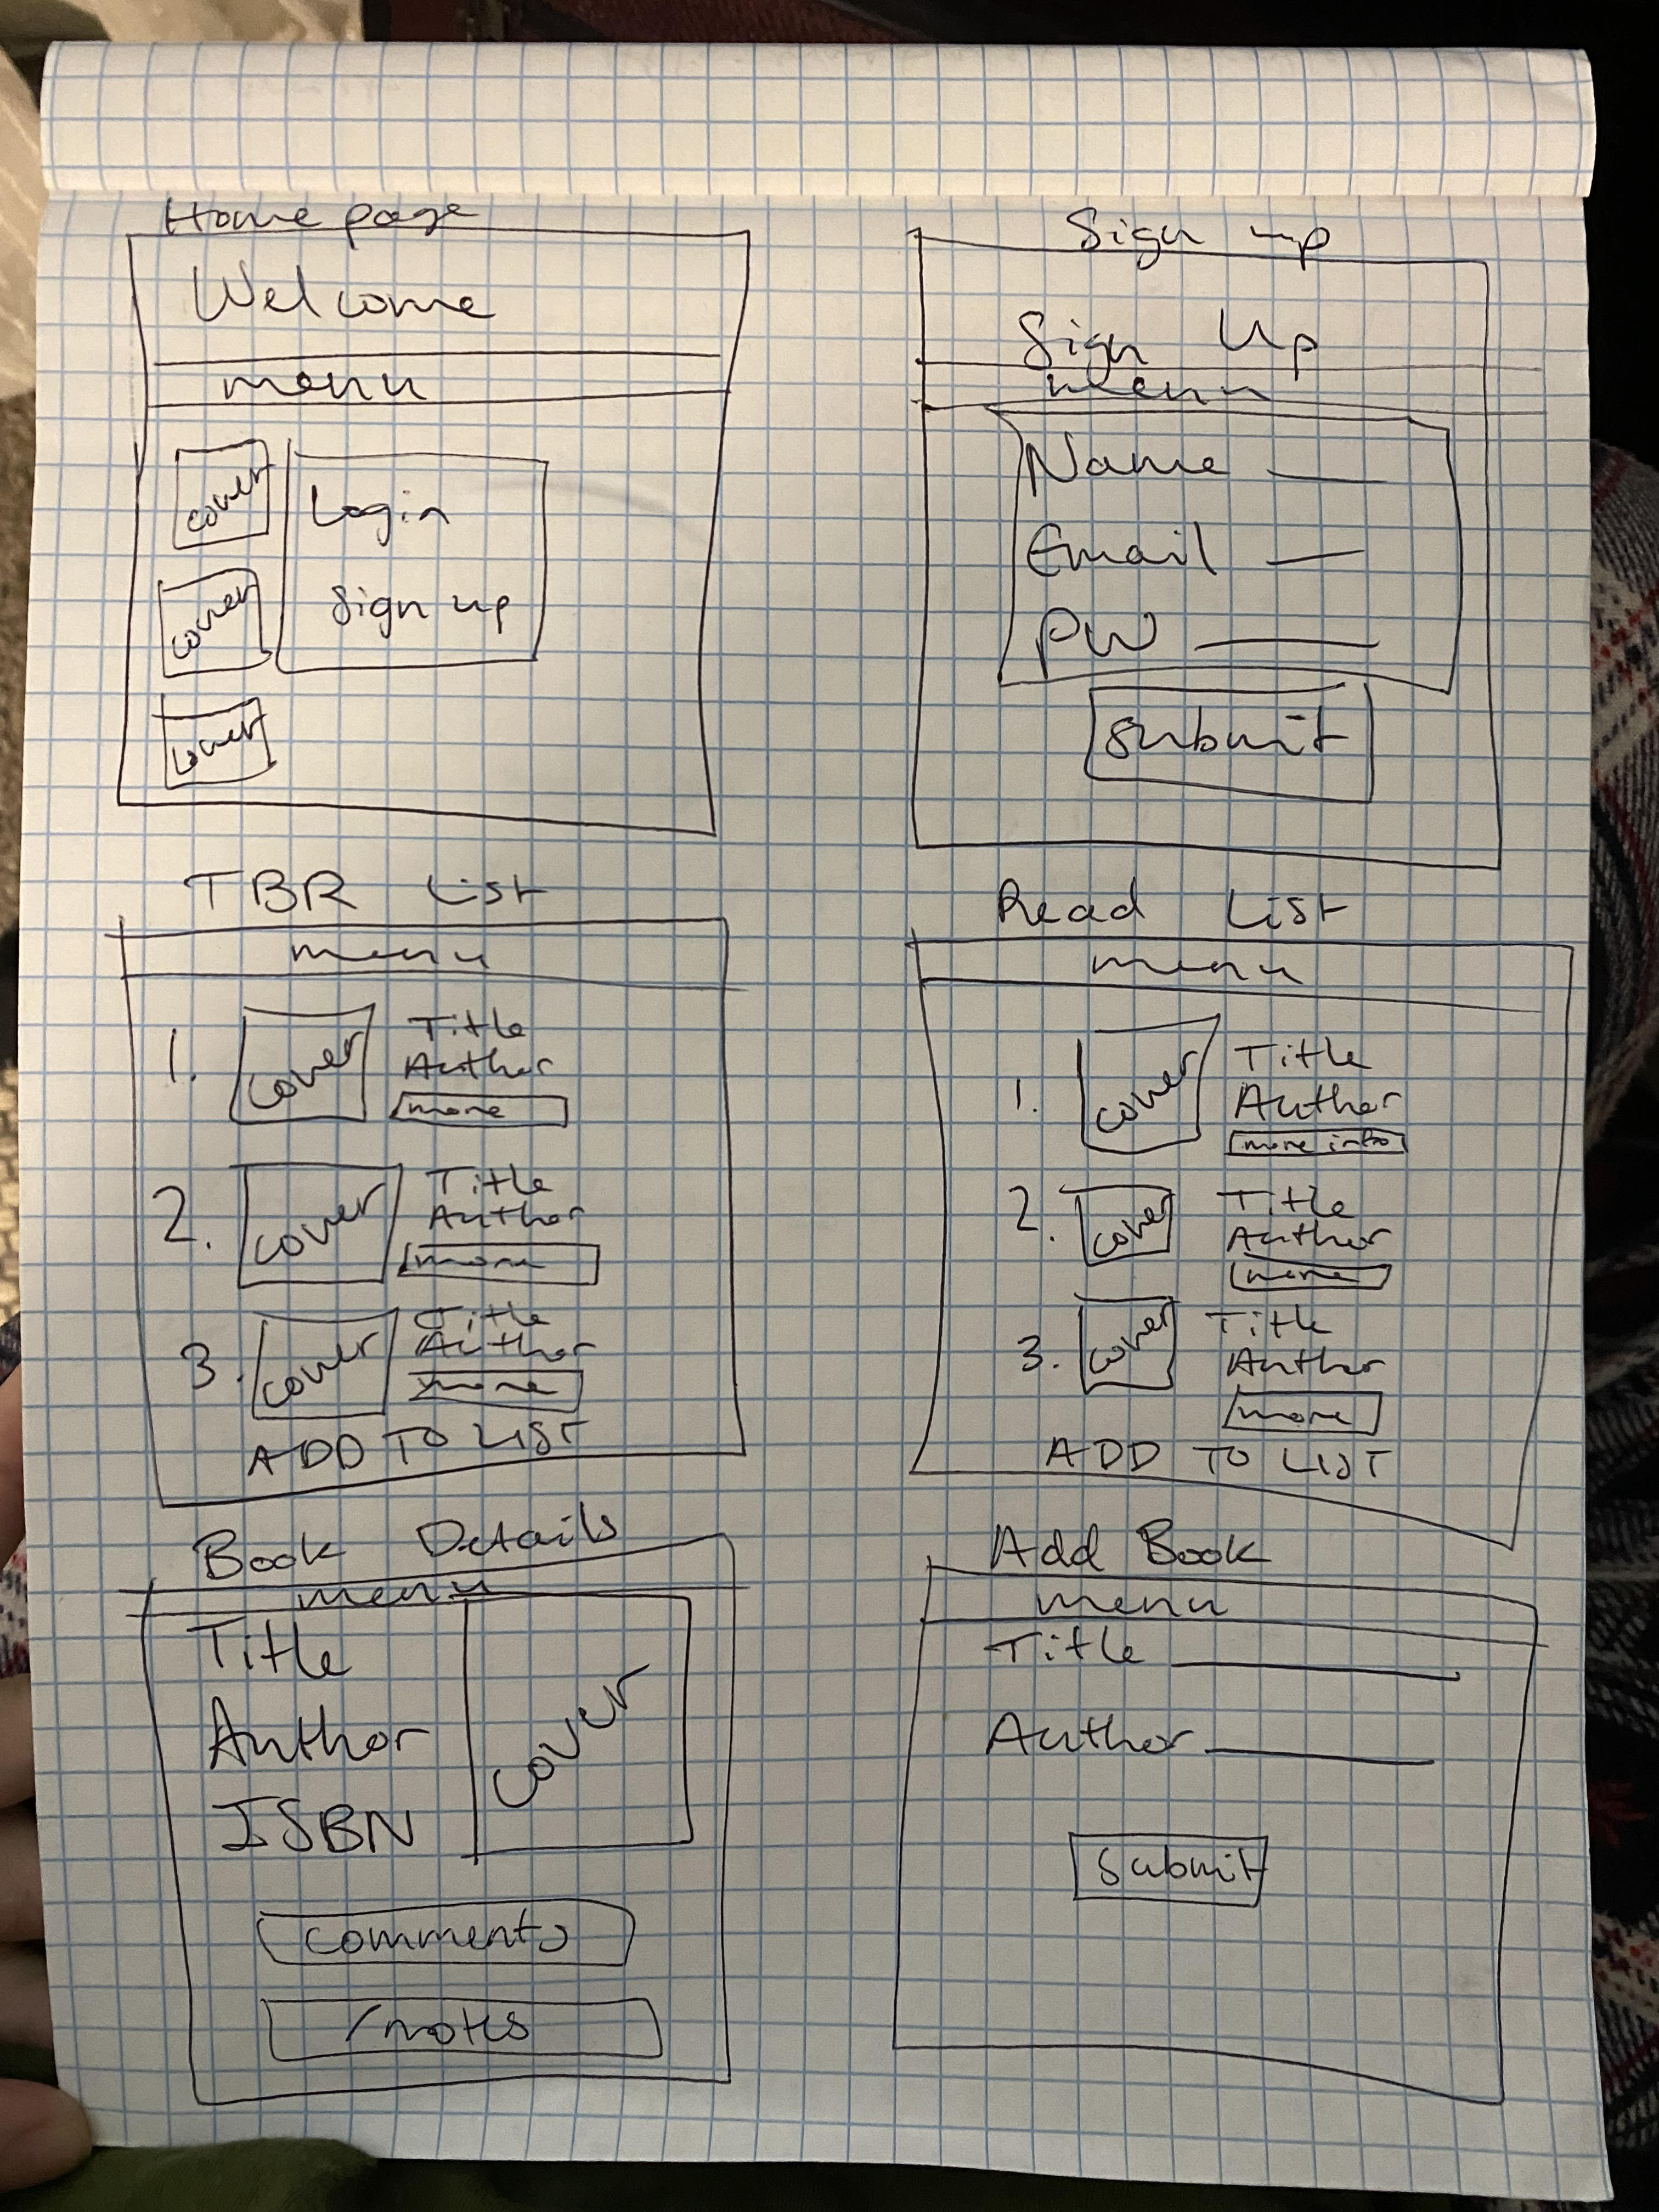 Home page
Welcome
menu
cover
Login
cover
Sign up
cover
Sign up
Sign Up
menu
Name
Email
PW
Submit
TBR List
menu
1. cover Title
Author
more
2. cover Title
Author
more
3. cover Title
Author
more
ADD TO LIST
Read List
menu
1. cover Title
Author
more info
2. cover Title
Author
more
3. cover Title
Author
more
ADD TO LIST
Book Details
menu
Title
Author
ISBN
cover
comments
/notes
Add Book
menu
Title
Author
Submit